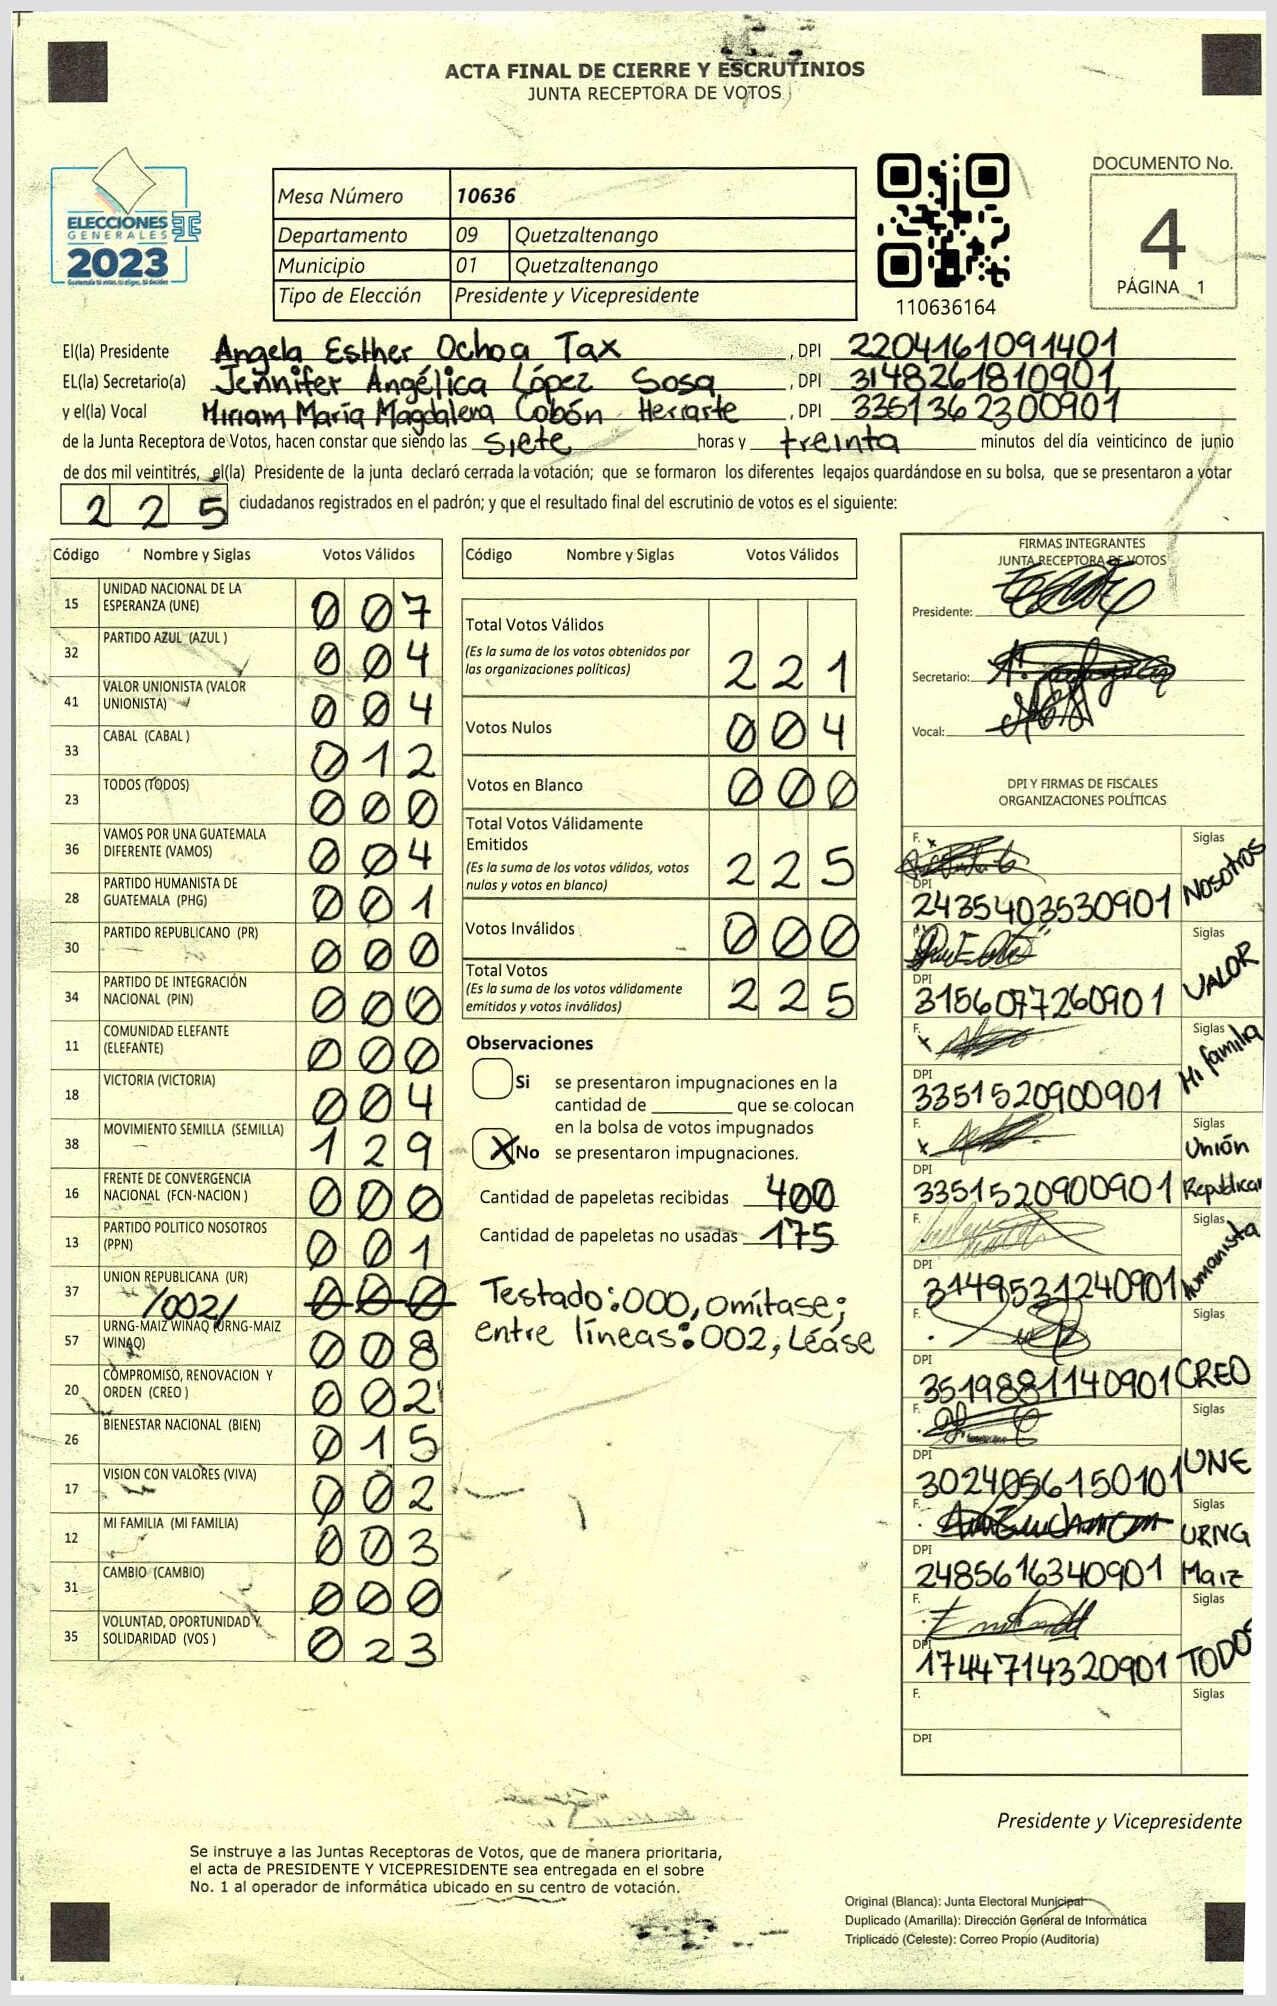 ACTA FINAL DE CIERRE Y ESCRUTINIOS
JUNTA RECEPTORA DE VOTOS
ELECCIONES
GENERALES
2023
Mesa Número 10636
Departamento 09 Quetzaltenango
Municipio 01 Quetzaltenango
Tipo de Elección Presidente y Vicepresidente
110636164
DOCUMENTO No.
4
PÁGINA 1
El(la) Presidente Angela Esther Ochoa Tax , DPI 2204161091401
EL(la) Secretario(a) Jennifer Angélica López Sosa , DPI 3148261810901
y el(la) Vocal Miriam María Magdalena Cobón Herrarte , DPI 3351362300901
de la Junta Receptora de Votos, hacen constar que siendo las siete horas y treinta minutos del día veinticinco de junio
de dos mil veintitrés, el(la) Presidente de la junta declaró cerrada la votación; que se formaron los diferentes legajos guardándose en su bolsa, que se presentaron a votar
225 ciudadanos registrados en el padrón; y que el resultado final del escrutinio de votos es el siguiente:
Código Nombre y Siglas Votos Válidos
15 UNIDAD NACIONAL DE LA ESPERANZA (UNE) 007
32 PARTIDO AZUL (AZUL ) 004
41 VALOR UNIONISTA (VALOR UNIONISTA) 004
33 CABAL (CABAL ) 012
23 TODOS (TODOS) 000
36 VAMOS POR UNA GUATEMALA DIFERENTE (VAMOS) 004
28 PARTIDO HUMANISTA DE GUATEMALA (PHG) 001
30 PARTIDO REPUBLICANO (PR) 000
34 PARTIDO DE INTEGRACIÓN NACIONAL (PIN) 000
11 COMUNIDAD ELEFANTE (ELEFANTE) 000
18 VICTORIA (VICTORIA) 004
38 MOVIMIENTO SEMILLA (SEMILLA) 129
16 FRENTE DE CONVERGENCIA NACIONAL (FCN-NACION ) 000
13 PARTIDO POLITICO NOSOTROS (PPN) 001
37 UNION REPUBLICANA (UR) /002/ 000
57 URNG-MAIZ WINAQ (URNG-MAIZ WINAQ) 008
20 COMPROMISO, RENOVACION Y ORDEN (CREO ) 002
26 BIENESTAR NACIONAL (BIEN) 015
17 VISION CON VALORES (VIVA) 002
12 MI FAMILIA (MI FAMILIA) 003
31 CAMBIO (CAMBIO) 000
35 VOLUNTAD, OPORTUNIDAD Y SOLIDARIDAD (VOS ) 023
Código Nombre y Siglas Votos Válidos
Total Votos Válidos
(Es la suma de los votos obtenidos por
las organizaciones políticas) 221
Votos Nulos 004
Votos en Blanco 000
Total Votos Válidamente
Emitidos
(Es la suma de los votos válidos, votos
nulos y votos en blanco) 225
Votos Inválidos 000
Total Votos
(Es la suma de los votos válidamente
emitidos y votos inválidos) 225
Observaciones
Si se presentaron impugnaciones en la
cantidad de ________ que se colocan
en la bolsa de votos impugnados
X No se presentaron impugnaciones.
Cantidad de papeletas recibidas 400
Cantidad de papeletas no usadas 175
Testado:000, omítase;
entre líneas:002, Léase
FIRMAS INTEGRANTES
JUNTA RECEPTORA DE VOTOS
Presidente:
Secretario:
Vocal:
DPI Y FIRMAS DE FISCALES
ORGANIZACIONES POLÍTICAS
F. Siglas
DPI 2435403530901 Nosotros
F. Siglas
DPI 3156077260901 VALOR
F. Siglas
DPI 3351520900901 Mi familia
F. Siglas
DPI 3351520900901 Unión Republican
F. Siglas
DPI 3149531240901 humanista
F.
DPI 3519881140901 CREO
F. Siglas
DPI 3024056150101 UNE
F. Siglas
DPI 2485616340901 URNG Maiz
F. Siglas
DPI 1744714320901 TODOS
F. Siglas
DPI
Presidente y Vicepresidente
Se instruye a las Juntas Receptoras de Votos, que de manera prioritaria,
el acta de PRESIDENTE Y VICEPRESIDENTE sea entregada en el sobre
No. 1 al operador de informática ubicado en su centro de votación.
Original (Blanca): Junta Electoral Municipal
Duplicado (Amarilla): Dirección General de Informática
Triplicado (Celeste): Correo Propio (Auditoría)